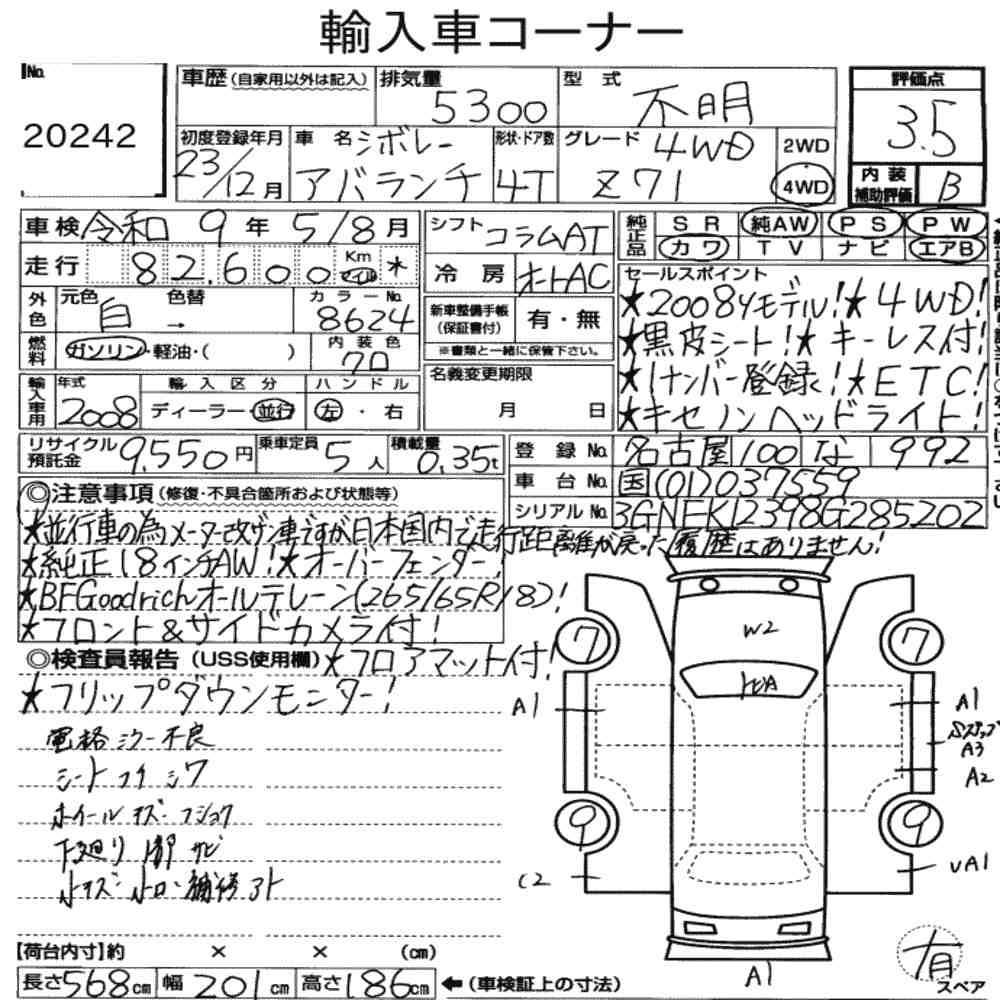 輸入車コーナー
No. 20242
車歴 (自家用以外は記入)
排気量 5300
型式 不明
評価点 3.5
内装補助評価 B
初度登録年月 23/12月
車名 シボレー アバランチ
形状・ドア数 4T
グレード 4WD Z71
2WD 4WD
車検 令和 9年 5/8月
走行 82,600 Km マイル *
シフト コラムAT
冷房 オートAC
純正品 SR 純AW PS PW
カワ TV ナビ エアB
外色 元色 白 → 色替
カラーNo. 8624
燃料 ガソリン・軽油・( )
内装色 クロ
新車整備手帳(保証書付) 有・無
※書類と一緒に保管下さい。
セールスポイント
★2008yモデル!★4WD!
★黒皮シート!★キーレス付!
★1ナンバー登録!★ETC!
★キセノンヘッドライト!
輸入車用 年式 2008
輸入区分 ディーラー・並行
ハンドル 左・右
名義変更期限 月 日
リサイクル預託金 9,550円
乗車定員 5人
積載量 0.35t
登録No. 名古屋 100 な 992
車台No. 国(01)037559
シリアルNo. 3GNEK12398G285202
◎注意事項 (修復・不具合箇所および状態等)
★並行車の為メーター改ザン車ですが日本国内で走行距離が戻った履歴はありません!
★純正18インチAW!★オーバーフェンダー!
★BFGoodrichオールテレーン(265/65R18)!
★フロント&サイドカメラ付!
◎検査員報告 (USS使用欄) ★フロアマット付!
★フリップダウンモニター!
電格ミラー不良
シート コゲ シワ
ホイール キズ・フショク
下廻り 1部 サビ
小キズ・小凹・補修アト
7 7
W2
A1 A1
Sステップ
A3
A2
9 9
C2 UA1
A1
有 スペア
【荷台内寸】約 × × (cm)
長さ568cm 幅201cm 高さ186cm ←(車検証上の寸法)